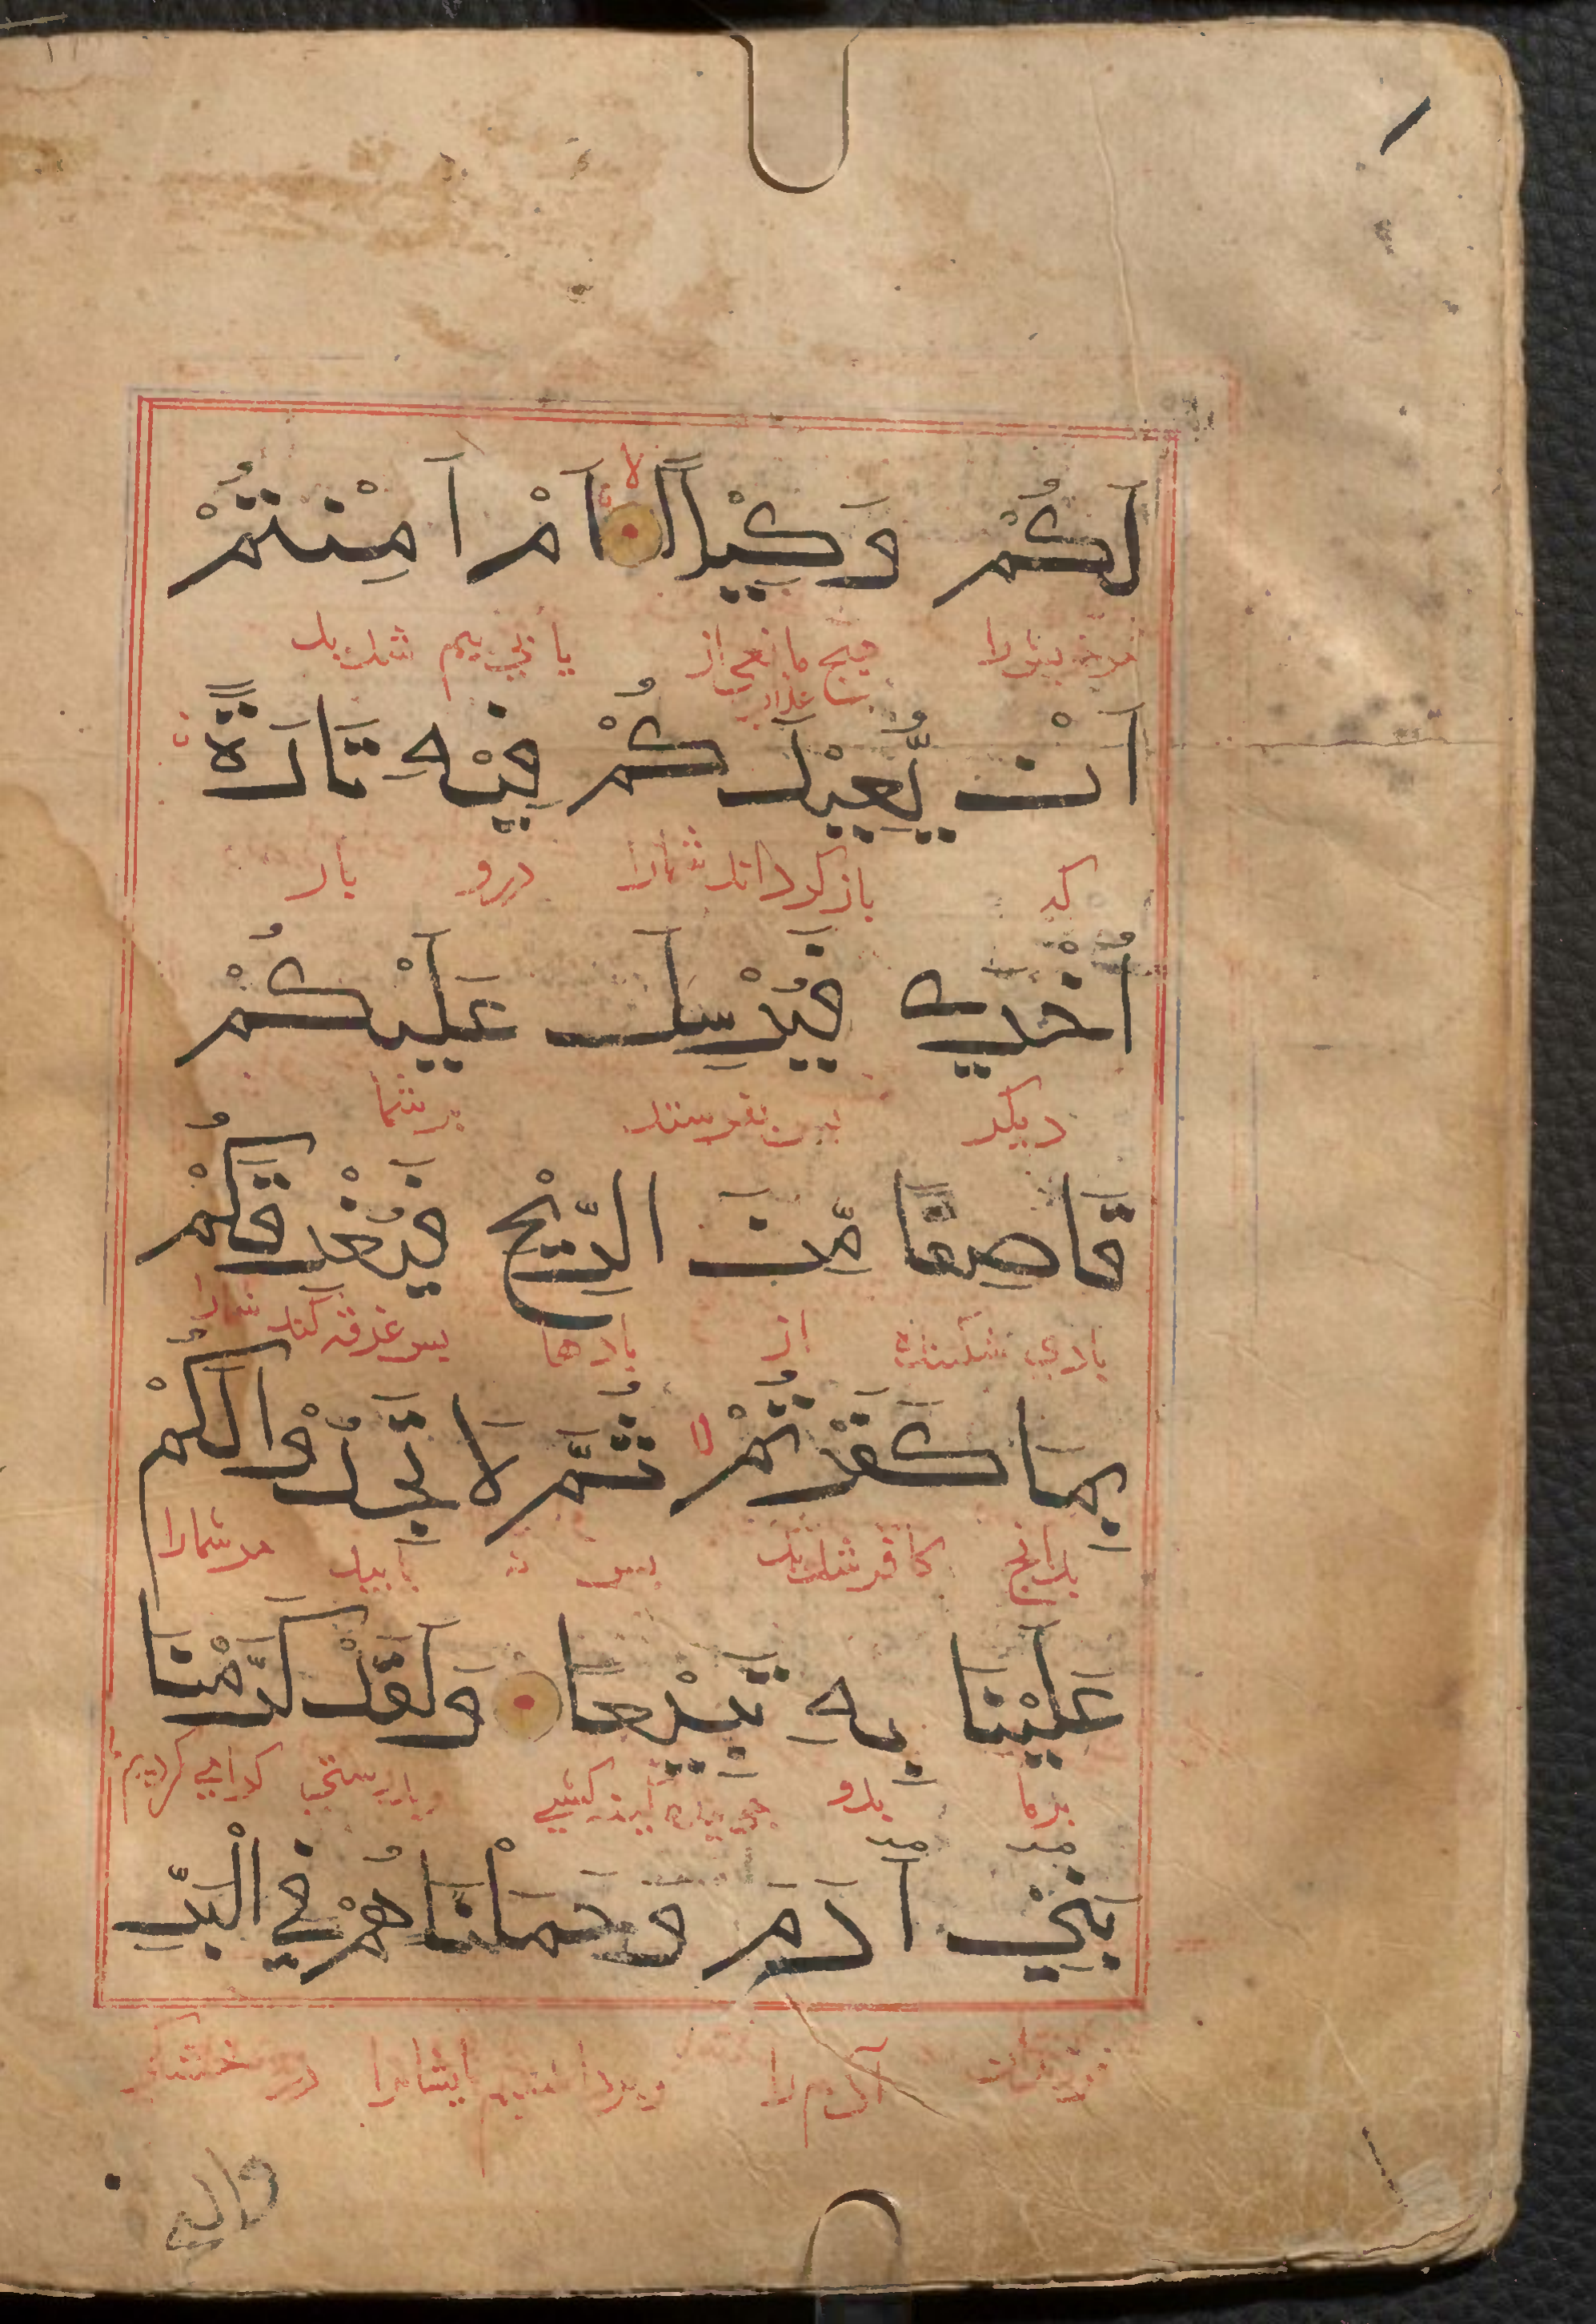 لَكُمْ وَكِيْلًا اَمْ اَمِنْتُمْ
هیچ مانعی از
عذاب
اَنْ يُّعِيْدَكُمْ فِيْهِ تَارَةً
که باز گرداند شمارا درو بار
اُخْرٰى فَيُرْسِلَ عَلَيْكُمْ
دیگر پس بفرستد بر شما
قَاصِفًا مِّنَ الرِّيْحِ فَيُغْرِقَكُمْ
بادی شکننده از بادها پس غرقه کند شمارا
بِمَا كَفَرْتُمْ ثُمَّ لَا تَجِدُوْا لَكُمْ
بدانچ کافر شدید پس نه یابید مر شمارا
عَلَيْنَا بِهٖ تَبِيْعًا وَلَقَدْ كَرَّمْنَا
بر ما بدو گرامی کردیم
بَنِيْ اٰدَمَ وَحَمَلْنَاهُمْ فِي الْبَرِّ
فرزندان آدم را و برداشتیم ایشانرا در خشکی